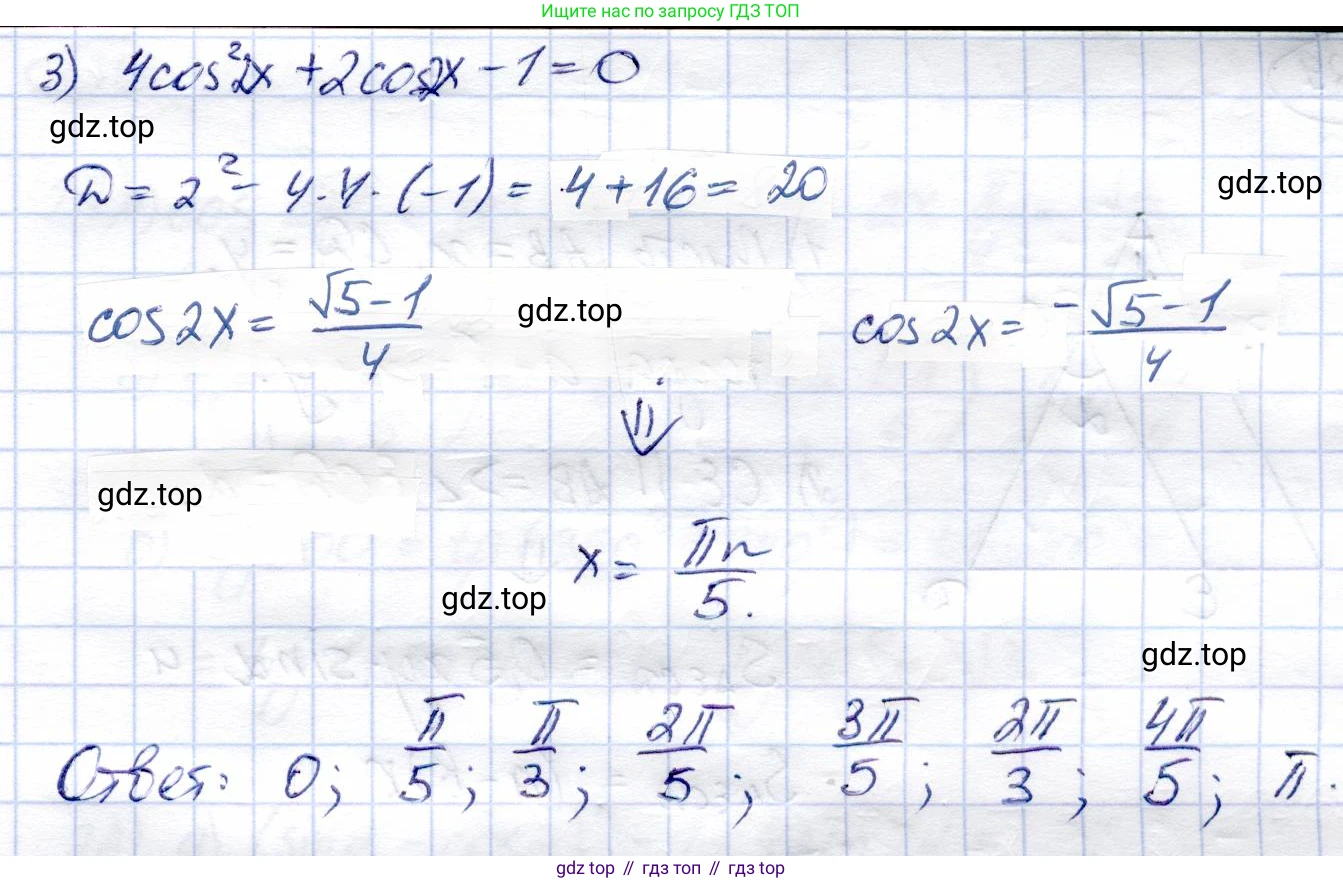 Ищите нас по запросу ГДЗ ТОП
3) 4cos²2x + 2cos2x - 1 = 0
gdz.top
D = 2² - 4·4·(-1) = 4 + 16 = 20
gdz.top
cos2x = (√5-1)/4 gdz.top cos2x = -(√5-1)/4
⇓
gdz.top
x = πn/5.
gdz.top
gdz.top
Ответ: 0; π/5; π/3; 2π/5; 3π/5; 2π/3; 4π/5; π.
gdz top // гдз топ // gdz top